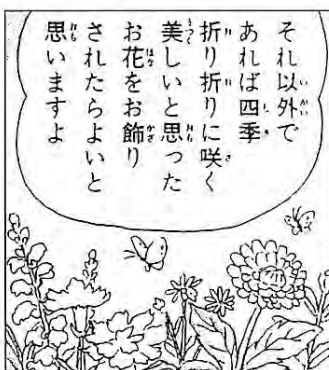 それ以外で
あれば四季
折り折りに咲く
美しいと思った
お花をお飾り
されたらよいと
思いますよ